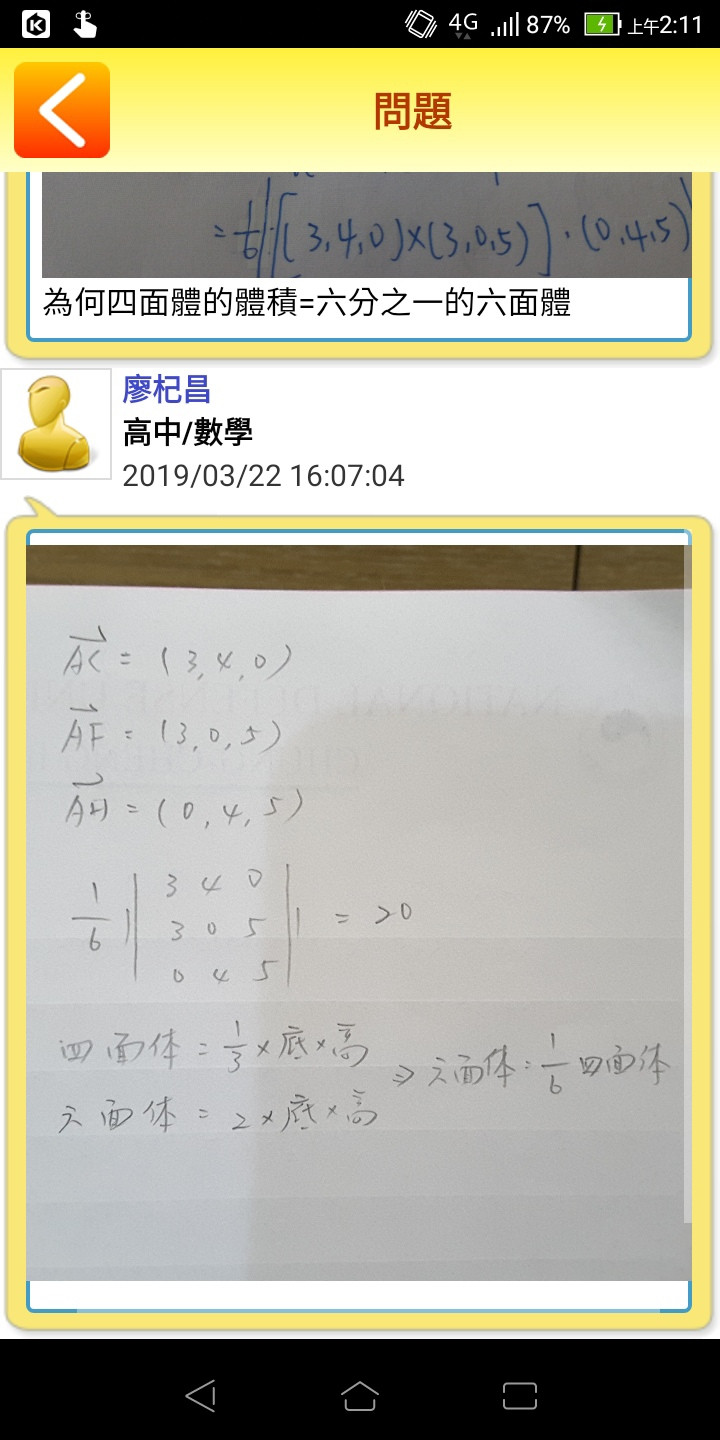 4G 87% 上午2:11
問題
=1/6|[(3,4,0)×(3,0,5)]·(0,4,5)|
為何四面體的體積=六分之一的六面體
廖杞昌
高中/數學
2019/03/22 16:07:04
AC = (3,4,0)
AF = (3,0,5)
AH = (0,4,5)
1/6 | | 3 4 0
3 0 5
0 4 5 | | = 20
四面体 = 1/3 × 底 × 高
六面体 = 2 × 底 × 高
⇒ 六面体 = 1/6 四面体